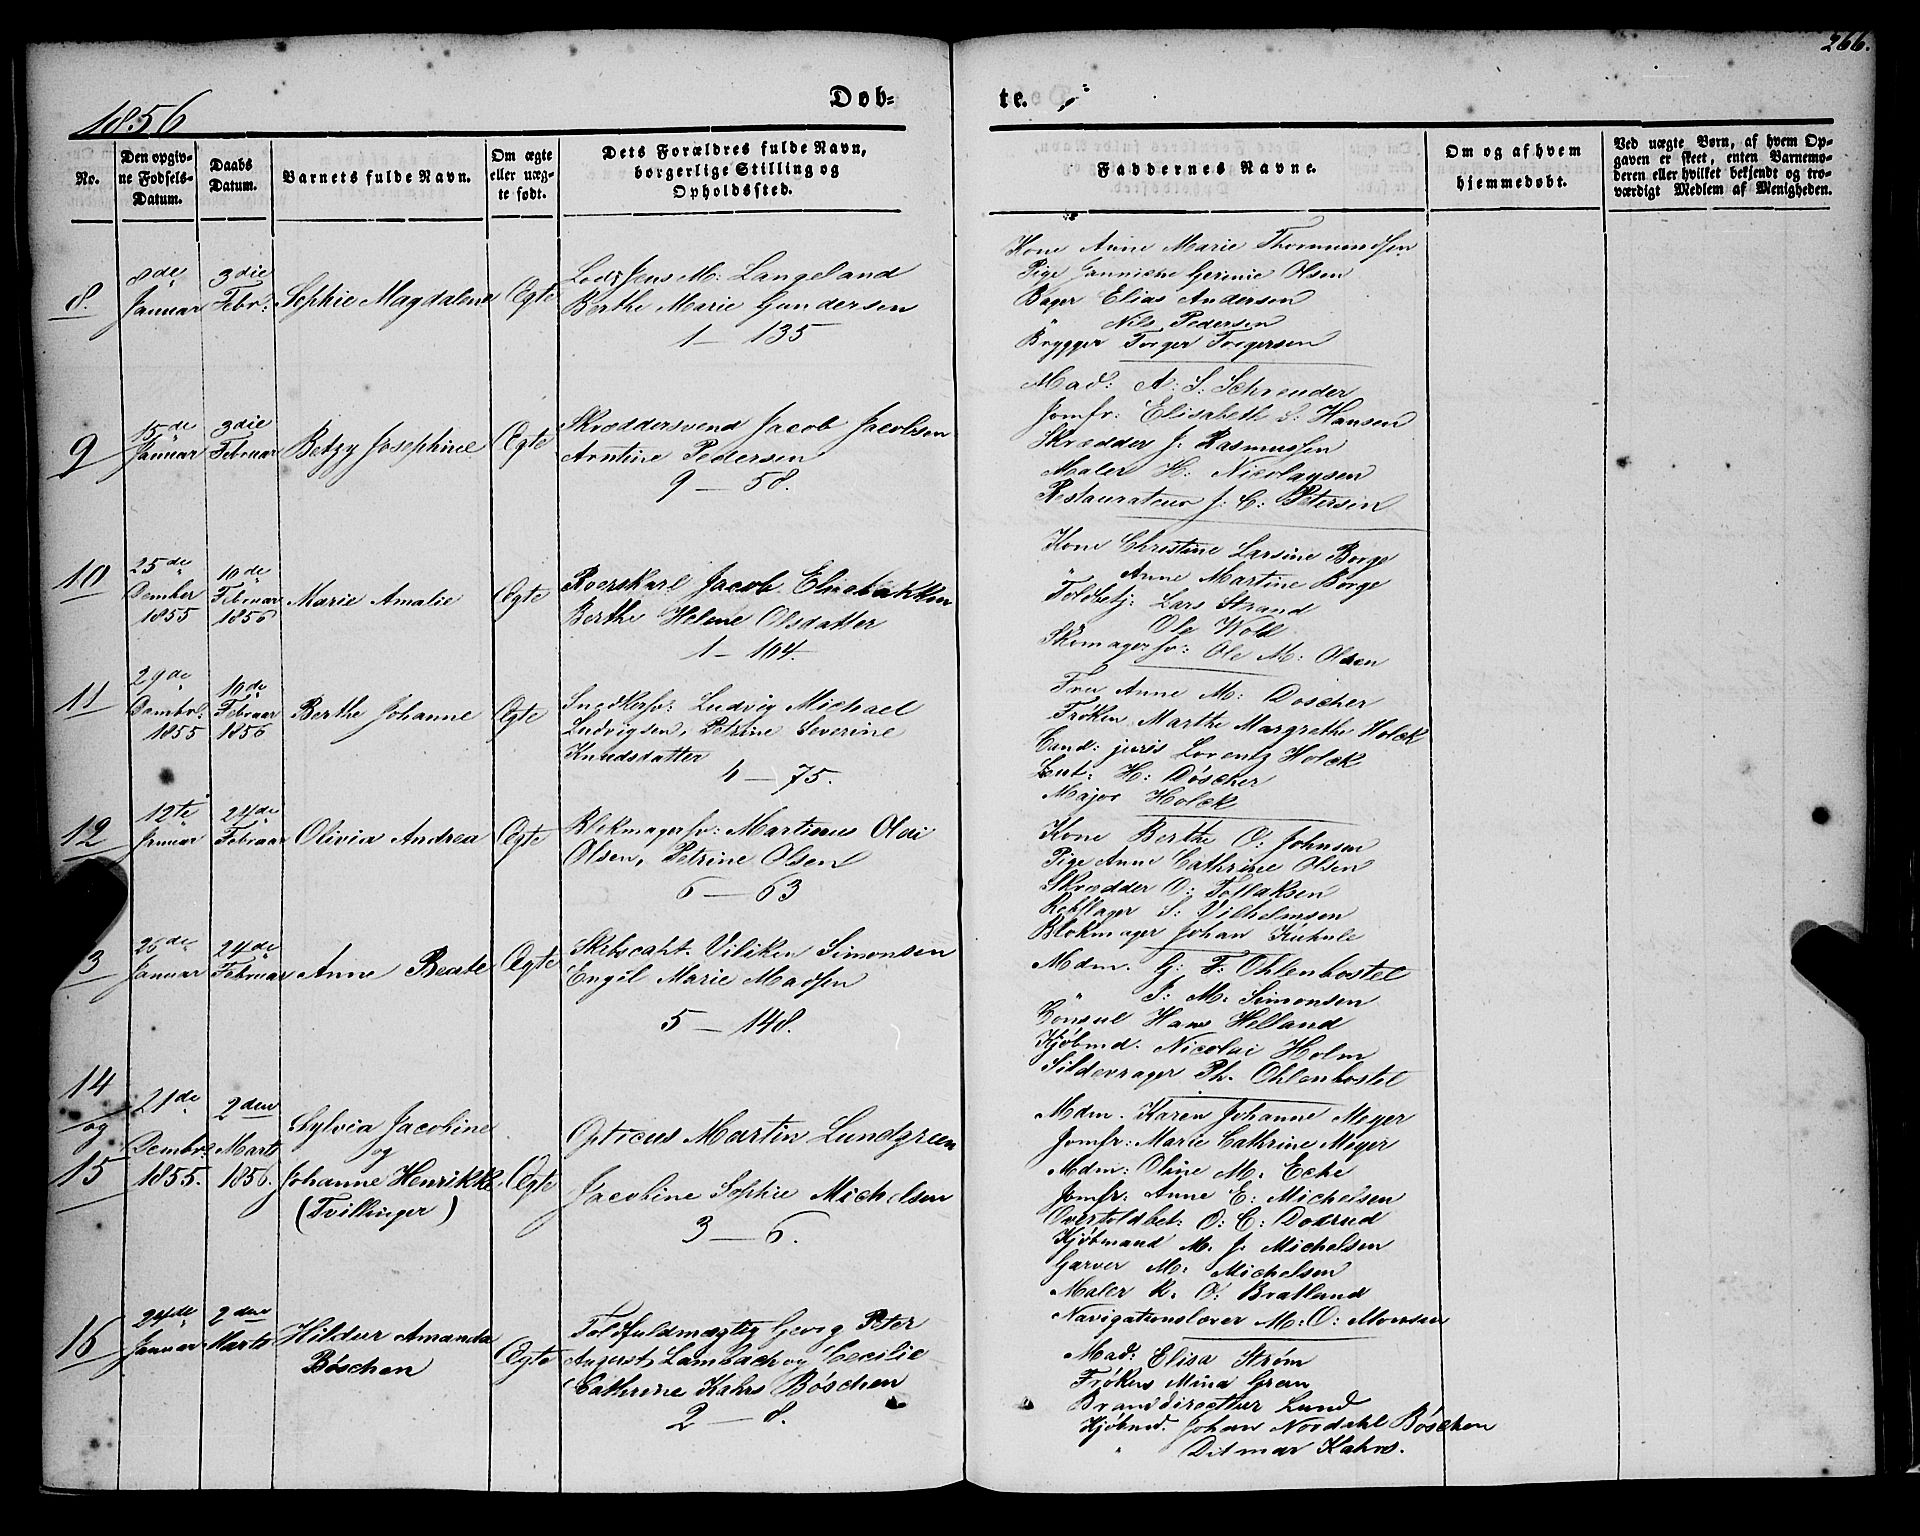 266.
1856
Døb-
te.
No.
Den opgiv-
ne Fødsels-
Datum.
Daabs
Datum.
Barnets fulde Navn.
Om ægte
eller uæg-
te født.
Dets Forældres fulde Navn,
borgerlige Stilling og
Opholdssted.
Faddernes Navne.
Om og af hvem
hjemmedøbt.
Ved uægte Børn, af hvem Op-
gaven er skeet, enten Barnemo-
deren eller hvilket bekjendt og tro-
værdigt Medlem af Menigheden.
8.
8de
Januar
3die
Febr:
Sophie Magdalena
Ægte
Lods Jens M: Langeland
Berthe Marie Gundersen
1 — 135
Kone Anne Marie Thormundssen
Pige Janniche Gerinie Olsen
Bager Elias Andersen
" Nils Pedersen
Brygger Torger Torgersen
9
15de
Januar
3die
Februar
Betzy Josephine
Ægte
Skræddersvend Jacob Jacobsen
Arntine Pedersen
9 — 58.
Mad: A: S: Schreuder
Jomfr: Elisabeth S: Hansen
Skrædder J: Rasmussen
Maler H: Nicolaysen
Restaurateur J: C: Petersen
10
25de
Dember
1855
10de
Februar
1856
Marie Amalie
Ægte
Roerskarl Jacob Eliebakken
Berthe Helene Olsdatter
1 — 104.
Kone Christine Larsine Borge
" Anne Martine Borge
Toldbetj: Lars Strand
Ole Wold
Skomagersv: Ole M: Olsen
11
29de
Dembr:
1855
10de
Februar
1856
Berthe Johanne
Ægte
Snedkersv: Ludvig Michael
Ludvigsen, Petrine Severine
Knudsdatter
4 — 75.
Fru Anne M: Doscher
Frøken Marthe Margrethe Holck
Cand: juris Lorentz Holck
Leut: H: Døscher
Major Holck
12
12te
Januar
24de
Februar
Olivia Andrea
Ægte
Blokmagersv: Martinus Olai
Olsen, Petrine Olsen
6 — 63
Kone Berthe O: Johnsen
Pige Anne Cathrine Olsen
Skrædder O: Tollaksen
Rebslager S: Vilhelmsen
Blokmager Johan Kuhnle
3
26de
Januar
24de
Februar
Anne Beate
Ægte
Skibscapt. Viliken Simonsen
Engel Marie Madssen
5 — 148.
Mdm. G: F: Ohlenbostel
" J: M: Simonsen
Konsul Hans Helland
Kjøbmd. Nicolai Holm
Sildevrager Ph. Ohlenbostel
14
og
15
21de
Dembr:
1855.
2den
Marts
1856.
Sylvia Jacobine
og
Johanne Henrikke
(Tvillinger)
Ægte
Opticus Martin Lundgreen
Jacobine Sophie Michelsen
3 — 6.
Mdm. Karen Johanne Meyer
Jomfr: Marie Cathrine Meyer
Mdm: Oline M: Eche
Jomfr: Anne E: Michelsen
Overtoldbet: O: C: Dosrud
Kjøbmand M. J. Michelsen
Garver M: Michelsen
Maler K. O: Bratland
Navigationslærer M: O: Monsen
16
24de
Januar
2den
Marts
Hildur Amanda
Bøschen
Ægte
Toldfuldmægtig Georg Peter
August Lambach og Cecilie
Cathrine Kahrs Bøschen
2 — 8.
Mad: Elisa Strøm
Frøken Mina Gran
Branddirecteur Lund
Kjøbmd. Johan Nordahl Bøschen
" Ditmar Kahrs.